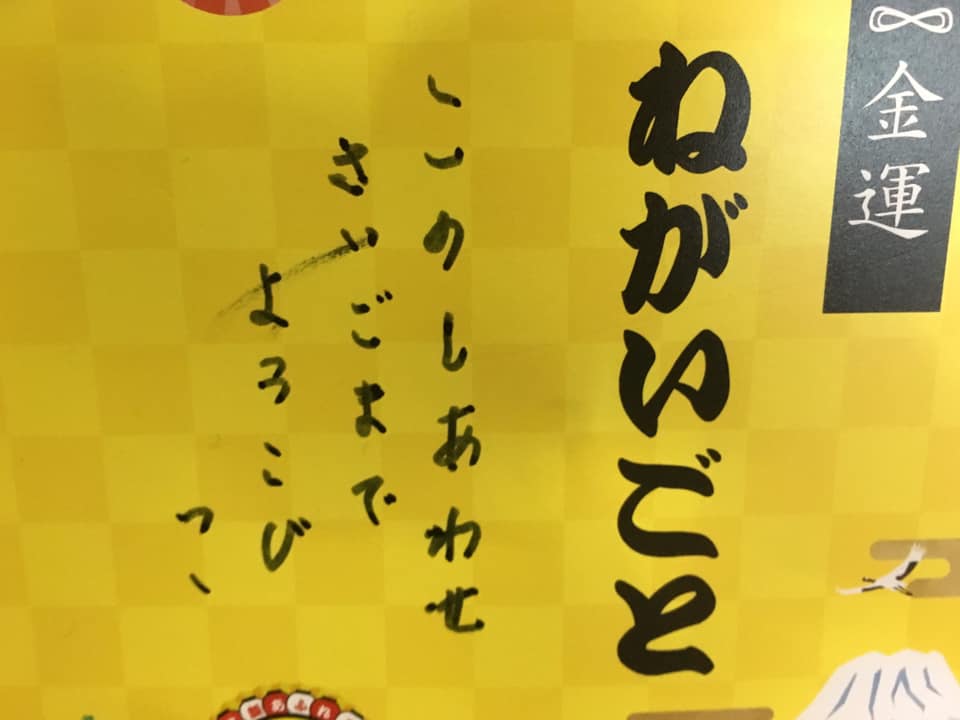 金運
ねがいごと
このしあわせ
さいごまで
よろこび
つゝ
あふれ